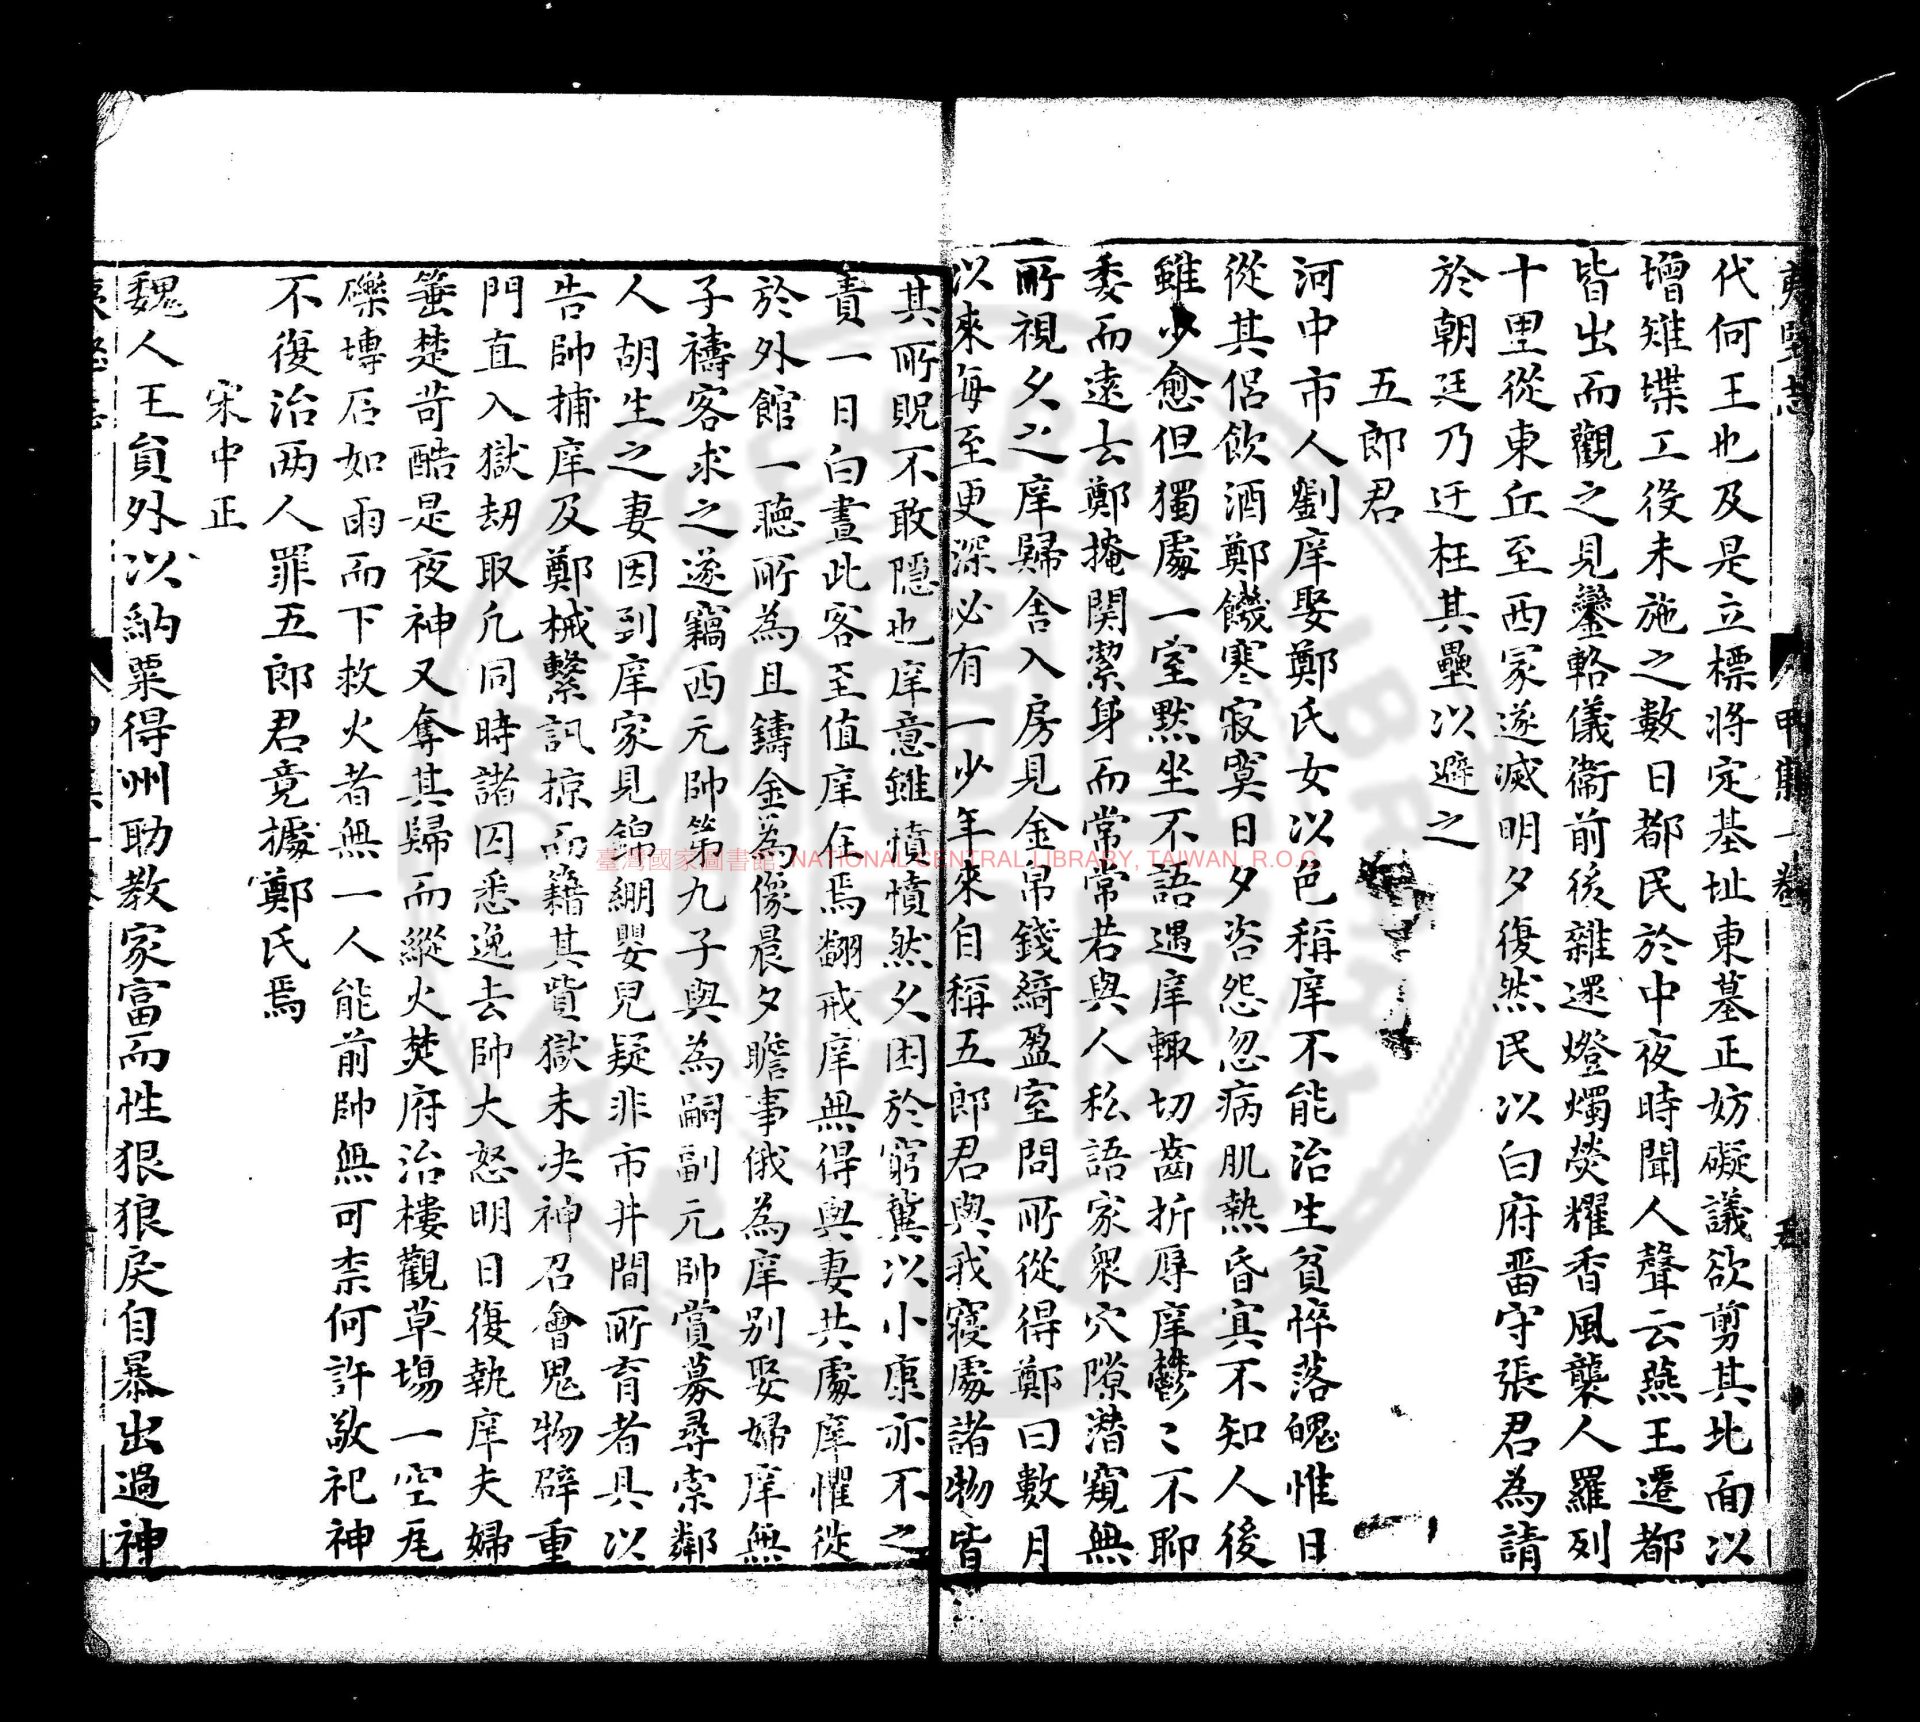 夷堅志 甲集一卷 五
代何王也及是立標將定基址東墓正妨礙議欲剪其北面以
增雉堞工役未施之數日都民於中夜時聞人聲云燕王遷都
皆出而觀之見鑾輅儀衛前後雜遝燈燭熒耀香風襲人羅列
十里從東丘至西冢遂滅明夕復然民以白府畱守張君為請
於朝廷乃迂枉其壘以避之
五郎君
河中市人劉庠娶鄭氏女以色稱庠不能治生貧悴落魄惟日
從其侶飲酒鄭饑寒寂寞日夕咨怨忽病肌熱昏寘不知人後
雖少愈但獨處一室默坐不語遇庠輒切齒折辱庠鬱〻不聊
委而遠去鄭掩関潔身而常常若與人私語家衆穴隙潛窺無
所視久之庠歸舍入房見金帛錢綺盈室問所從得鄭曰數月
以來每至更深必有一少年來自稱五郎君與我寢處諸物皆
其所貺不敢隱也庠意雖憤憤然久困於窮冀以小康亦不之
責一日白晝此客至值庠在焉翻戒庠無得與妻共處庠懼徙
於外館一聽所為且鑄金為像晨夕瞻事俄為庠別娶婦庠無
子禱客求之遂竊西元帥第九子與為嗣副元帥賞募尋索鄰
人胡生之妻因到庠家見錦綳嬰兒疑非市井間所育者具以
告帥捕庠及鄭械繫訊掠而籍其貲獄未决神召會鬼物辟重
門直入獄劫取凢同時諸囚悉逸去帥大怒明日復執庠夫婦
箠楚苛酷是夜神又奪其歸而縱火焚府治樓觀草塲一空瓦
礫塼石如雨而下救火者無一人能前帥無可柰何許敬祀神
不復治两人罪五郎君竟據鄭氏焉
宋中正
魏人王貟外以納粟得州助教家富而性狠狼戾自暴出過神